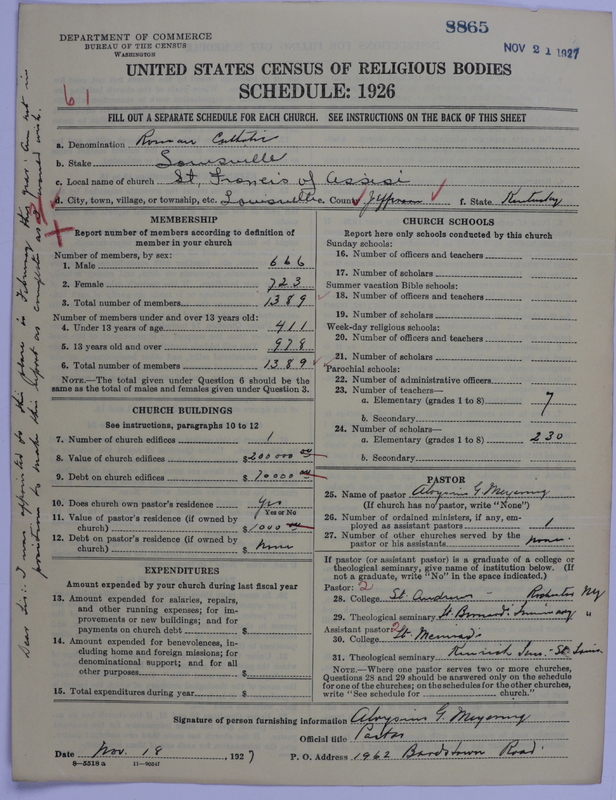 8865
NOV 21 1927
DEPARTMENT OF COMMERCE
BUREAU OF THE CENSUS
WASHINGTON
UNITED STATES CENSUS OF RELIGIOUS BODIES
SCHEDULE: 1926
61
FILL OUT A SEPARATE SCHEDULE FOR EACH CHURCH. SEE INSTRUCTIONS ON THE BACK OF THIS SHEET
a. Denomination Roman Catholic
b. Stake Louisville
c. Local name of church St. Francis of Assisi
d. City, town, village, or township, etc. Louisville e. County Jefferson f. State Kentucky
MEMBERSHIP
Report number of members according to definition of
member in your church
Number of members, by sex:
1. Male 666
2. Female 723
3. Total number of members 1389
Number of members under and over 13 years old:
4. Under 13 years of age 411
5. 13 years old and over 978
6. Total number of members 1389
NOTE.—The total given under Question 6 should be
same as the total of males and females given under Question 3.
CHURCH BUILDINGS
See instructions, paragraphs 10 to 12
7. Number of church edifices 1
8. Value of church edifices $200000
9. Debt on church edifices $70000
10. Does church own pastor's residence yes
Yes or No
11. Value of pastor's residence (if owned by
church) $1000
12. Debt on pastor's residence (if owned by
church) $ None
EXPENDITURES
Amount expended by your church during last fiscal year
13. Amount expended for salaries, repairs,
and other running expenses; for im-
provements or new buildings; and for
payments on church debt $
14. Amount expended for benevolences, in-
cluding home and foreign missions; for
denominational support; and for all
other purposes $
15. Total expenditures during year $
CHURCH SCHOOLS
Report here only schools conducted by this church
Sunday schools:
16. Number of officers and teachers
17. Number of scholars
Summer vacation Bible schools:
18. Number of officers and teachers
19. Number of scholars
Week-day religious schools:
20. Number of officers and teachers
21. Number of scholars
Parochial schools:
22. Number of administrative officers
23. Number of teachers—
a. Elementary (grades 1 to 8) 7
b. Secondary
24. Number of scholars—
a. Elementary (grades 1 to 8) 230
b. Secondary
PASTOR
25. Name of pastor Aloysius G. Meyering
(If church has no pastor, write "None")
26. Number of ordained ministers, if any, em-
ployed as assistant pastors 1
27. Number of other churches served by the
pastor or his assistants none
If pastor (or assistant pastor) is a graduate of a college or
theological seminary, give name of institution below. (If
not a graduate, write "No" in the space indicated.)
Pastor: 2
28. College St. Andrews - Rochester NY
29. Theological seminary St Bernards Seminary "
Assistant pastor: 2
30. College St. Meinrads
31. Theological seminary Kenrick Sem. - St. Louis
NOTE.—Where one pastor serves two or more churches,
Questions 28 and 29 should be answered only on the schedule
for one of the churches; on the schedules for the other churches,
write "See schedule for church."
Signature of person furnishing information Aloysius G. Meyering
Official title Pastor
Date Nov. 18 1927 P. O. Address 1962 Bardstown Road.
8—5518 a 11—9034f
Dear Sir: I was appointed to this place in February this year: Am not in
position to make this report as complete as I would wish.